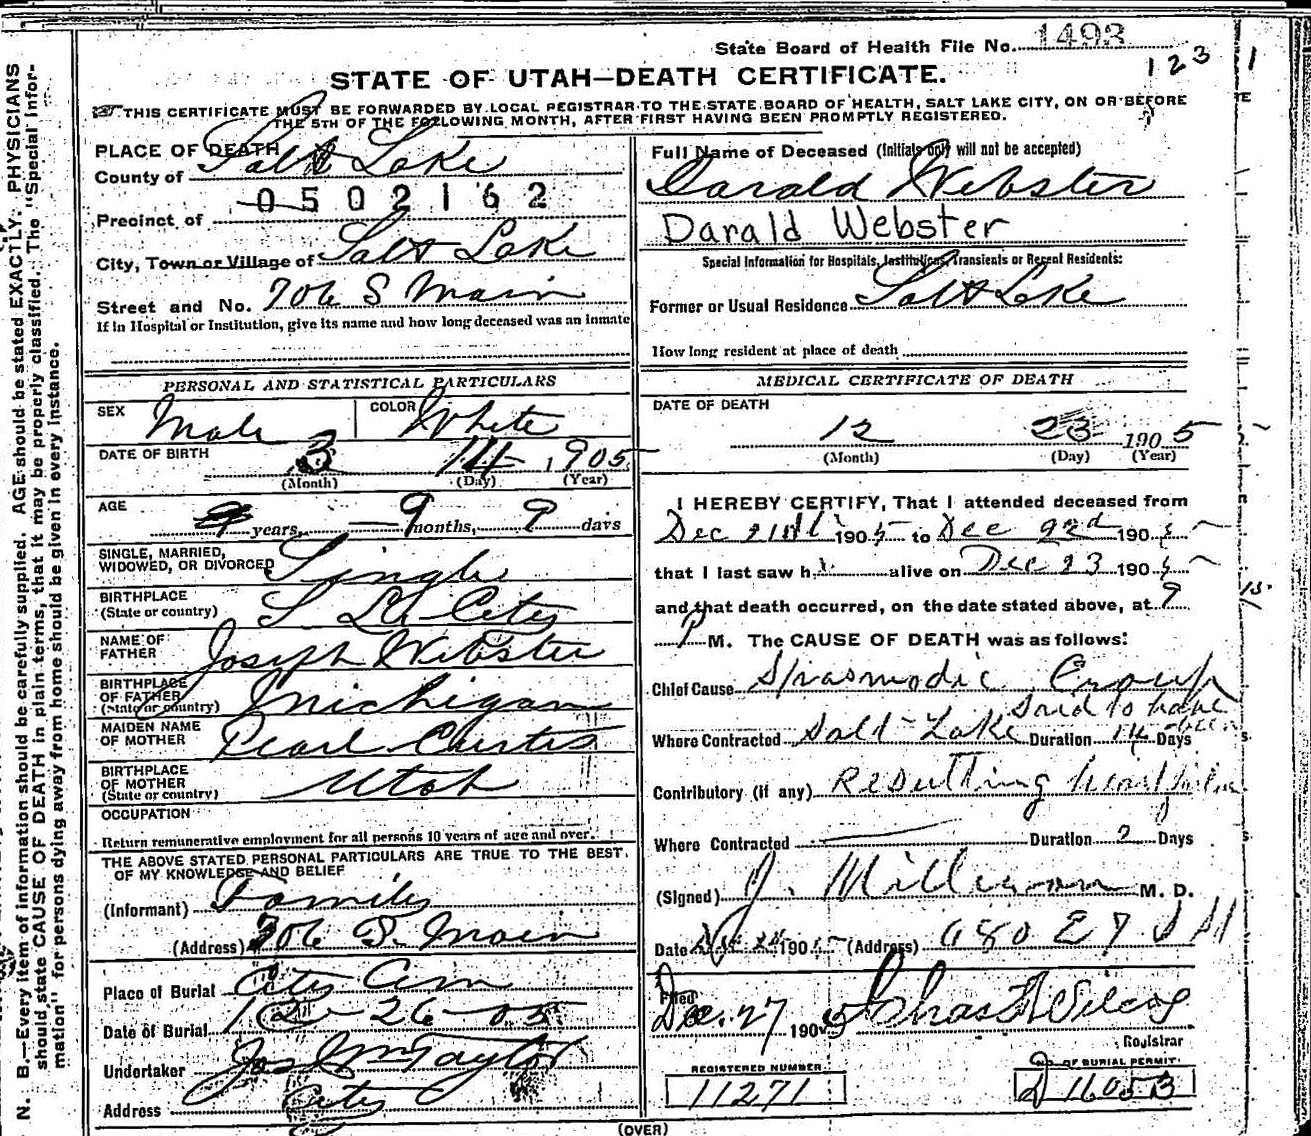 State Board of Health File No. 1493
1 2 3
STATE OF UTAH—DEATH CERTIFICATE.
THIS CERTIFICATE MUST BE FORWARDED BY LOCAL REGISTRAR TO THE STATE BOARD OF HEALTH, SALT LAKE CITY, ON OR BEFORE
THE 5TH OF THE FOLLOWING MONTH, AFTER FIRST HAVING BEEN PROMPTLY REGISTERED.
N. B.—Every item of information should be carefully supplied. AGE should be stated EXACTLY. PHYSICIANS
should state CAUSE OF DEATH in plain terms, that it may be properly classified. The "Special Infor-
mation" for persons dying away from home should be given in every instance.
PLACE OF DEATH
County of Salt Lake
0502162
Precinct of
City, Town or Village of Salt Lake
Street and No. 706 S Main
If in Hospital or Institution, give its name and how long deceased was an inmate
PERSONAL AND STATISTICAL PARTICULARS
SEX Male COLOR White
DATE OF BIRTH 3 14 1905
(Month) (Day) (Year)
AGE years, 9 months, 9 days
SINGLE, MARRIED,
WIDOWED, OR DIVORCED Single
BIRTHPLACE
(State or country) S Lk City
NAME OF
FATHER Joseph Webster
BIRTHPLACE
OF FATHER
(State or country) Michigan
MAIDEN NAME
OF MOTHER Pearl Curtis
BIRTHPLACE
OF MOTHER
(State or country) Utah
OCCUPATION
Return remunerative employment for all persons 10 years of age and over.
THE ABOVE STATED PERSONAL PARTICULARS ARE TRUE TO THE BEST
OF MY KNOWLEDGE AND BELIEF
(Informant) Family
(Address) 706 S. Main
Place of Burial City Cem
Date of Burial 12-26-05
Undertaker Jos Wm Taylor
Address City
Full Name of Deceased (Initials only will not be accepted)
Darald Webster
Darald Webster
Special Information for Hospitals, Institutions, Transients or Recent Residents:
Former or Usual Residence Salt Lake
How long resident at place of death
MEDICAL CERTIFICATE OF DEATH
DATE OF DEATH
12 23 1905
(Month) (Day) (Year)
I HEREBY CERTIFY, That I attended deceased from
Dec 21 1905 to Dec 22d 1905
that I last saw h alive on Dec 23 1905
and that death occurred, on the date stated above, at 9
P M. The CAUSE OF DEATH was as follows:
Chief Cause Spasmodic Croup
said to have been
Where Contracted Salt Lake Duration 14 Days
Contributory (if any) Resulting heart failure
Where Contracted Duration 2 Days
(Signed) J. M. D.
Date 190 (Address)
Filed
Dec. 27 1905 Chas Wilcox
Registrar
REGISTERED NUMBER
11271
No. OF BURIAL PERMIT.
16053
(OVER)